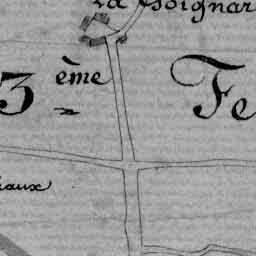 la Poignar
3 ème Fe
iaux